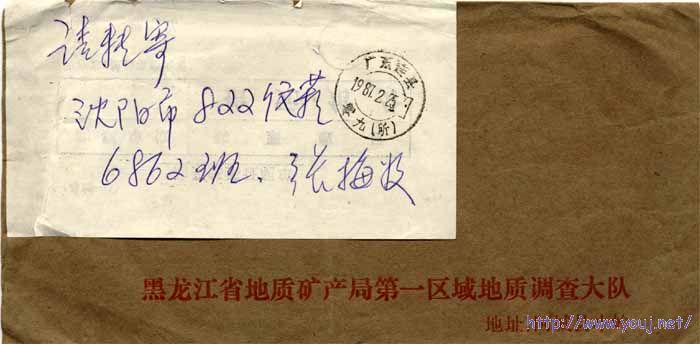 请转寄
沈阳市822信箱
6862班、张梅
广东连县
1987.2.
零九(所)
黑龙江省地质矿产局第一区域地质调查大队
地址:
http://www.youj.net/